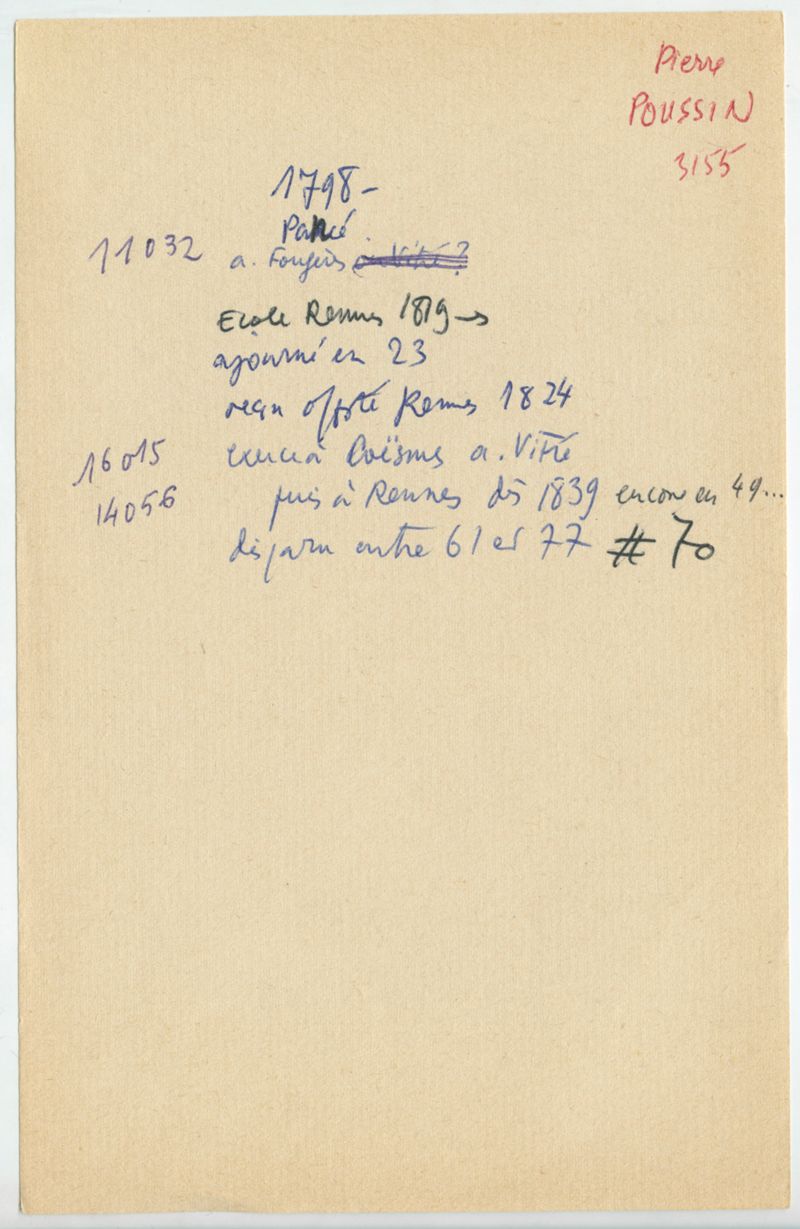 Pierre
POUSSIN
3155
1798 -
Pancé
11032
a. Fougères ou Vitré ?
Ecole Rennes 1819 →
ajourné en 23
reçu offté Rennes 1824
16015
exerce à Coësmes a. Vitré
14056
puis à Rennes dès 1839 encore en 49...
disparu entre 61 et 77 # 70